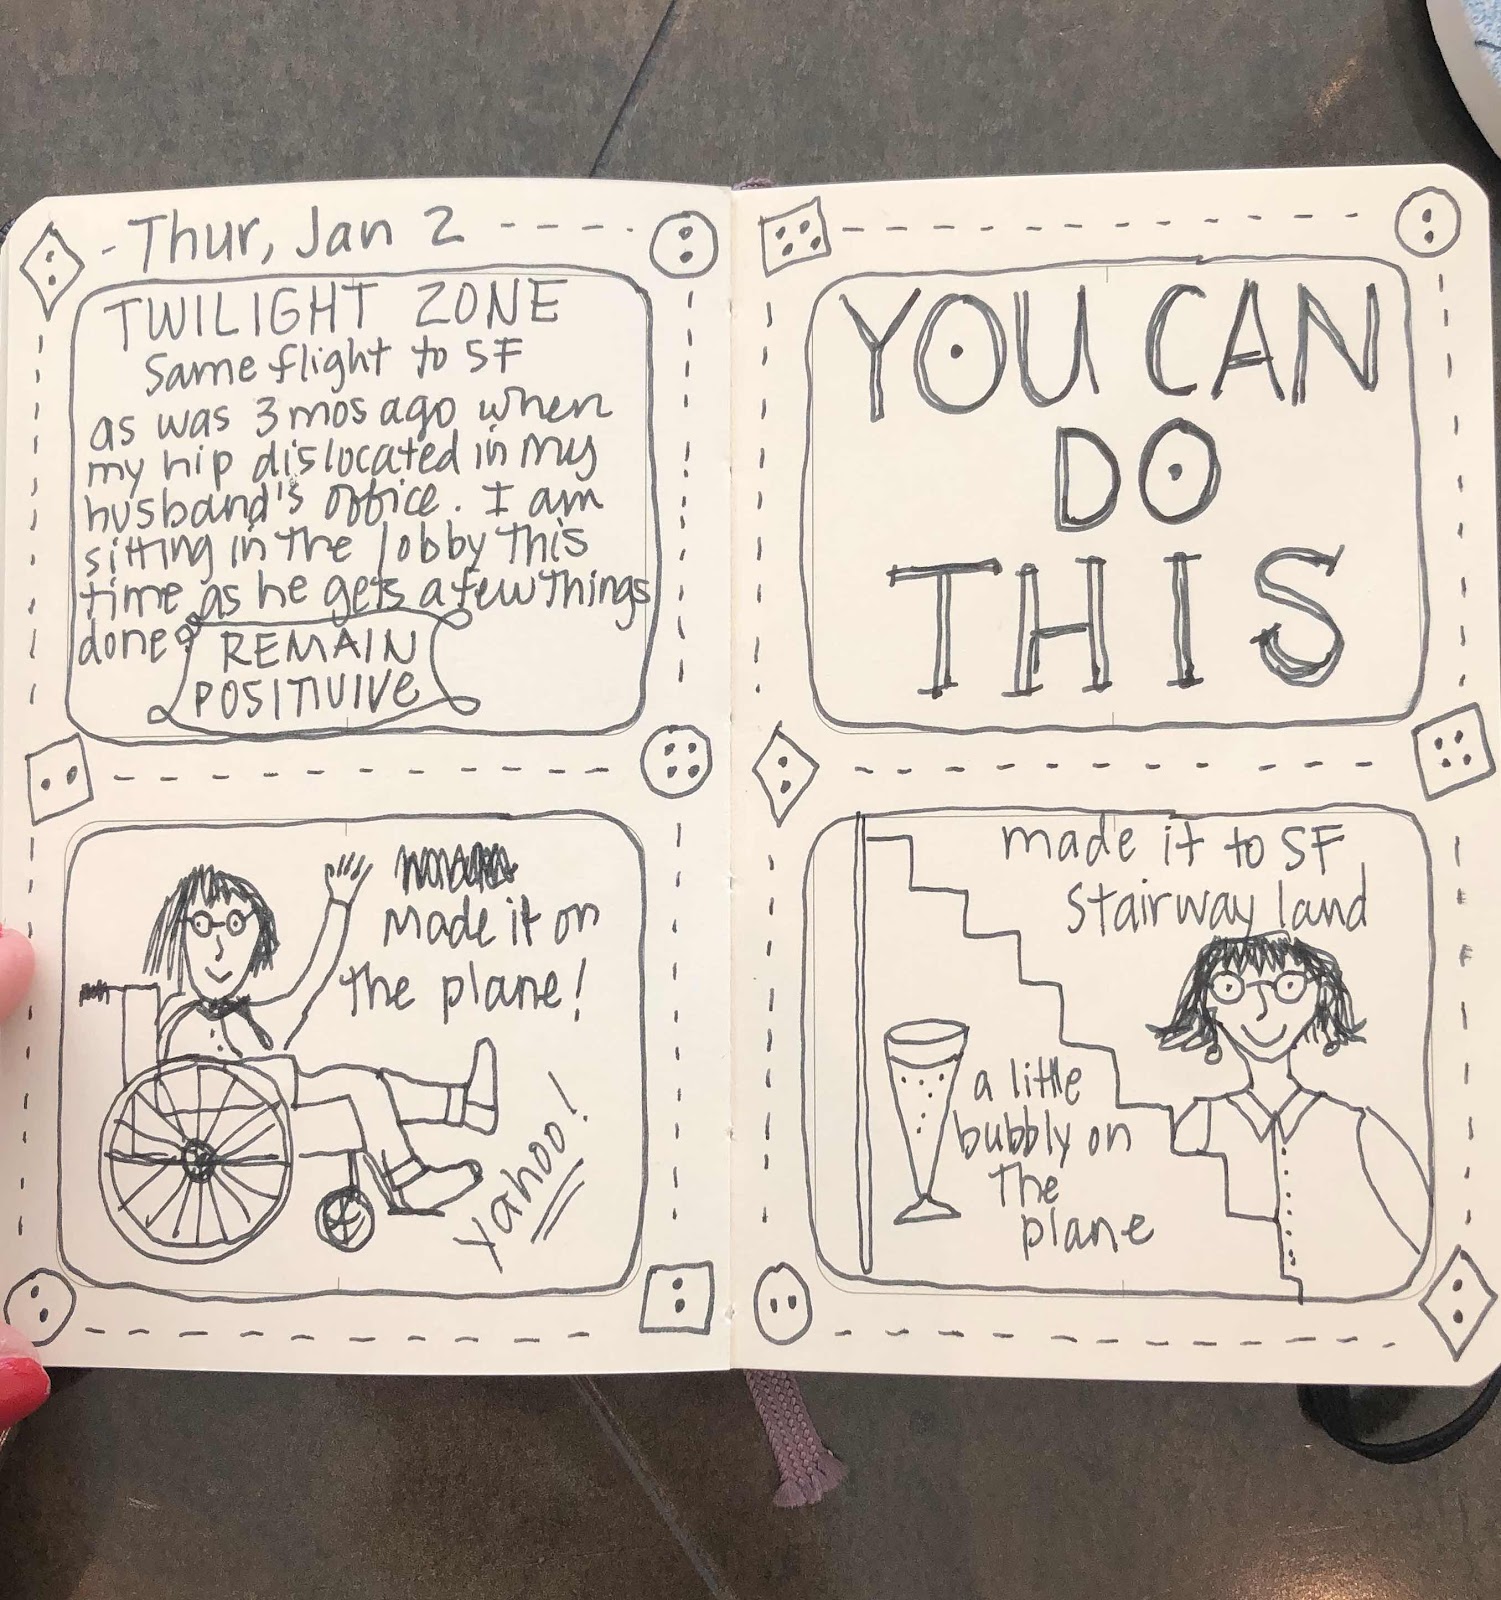 Thur, Jan 2
TWILIGHT ZONE
Same flight to SF
as was 3 mos ago when
my hip dislocated in my
husband's office. I am
sitting in the lobby this
time as he gets a few things
done
REMAIN
POSITIVIVE
made it on
the plane!
Yahoo!
YOU CAN
DO
THIS
made it to SF
Stairway land
a little
bubbly on
the
plane